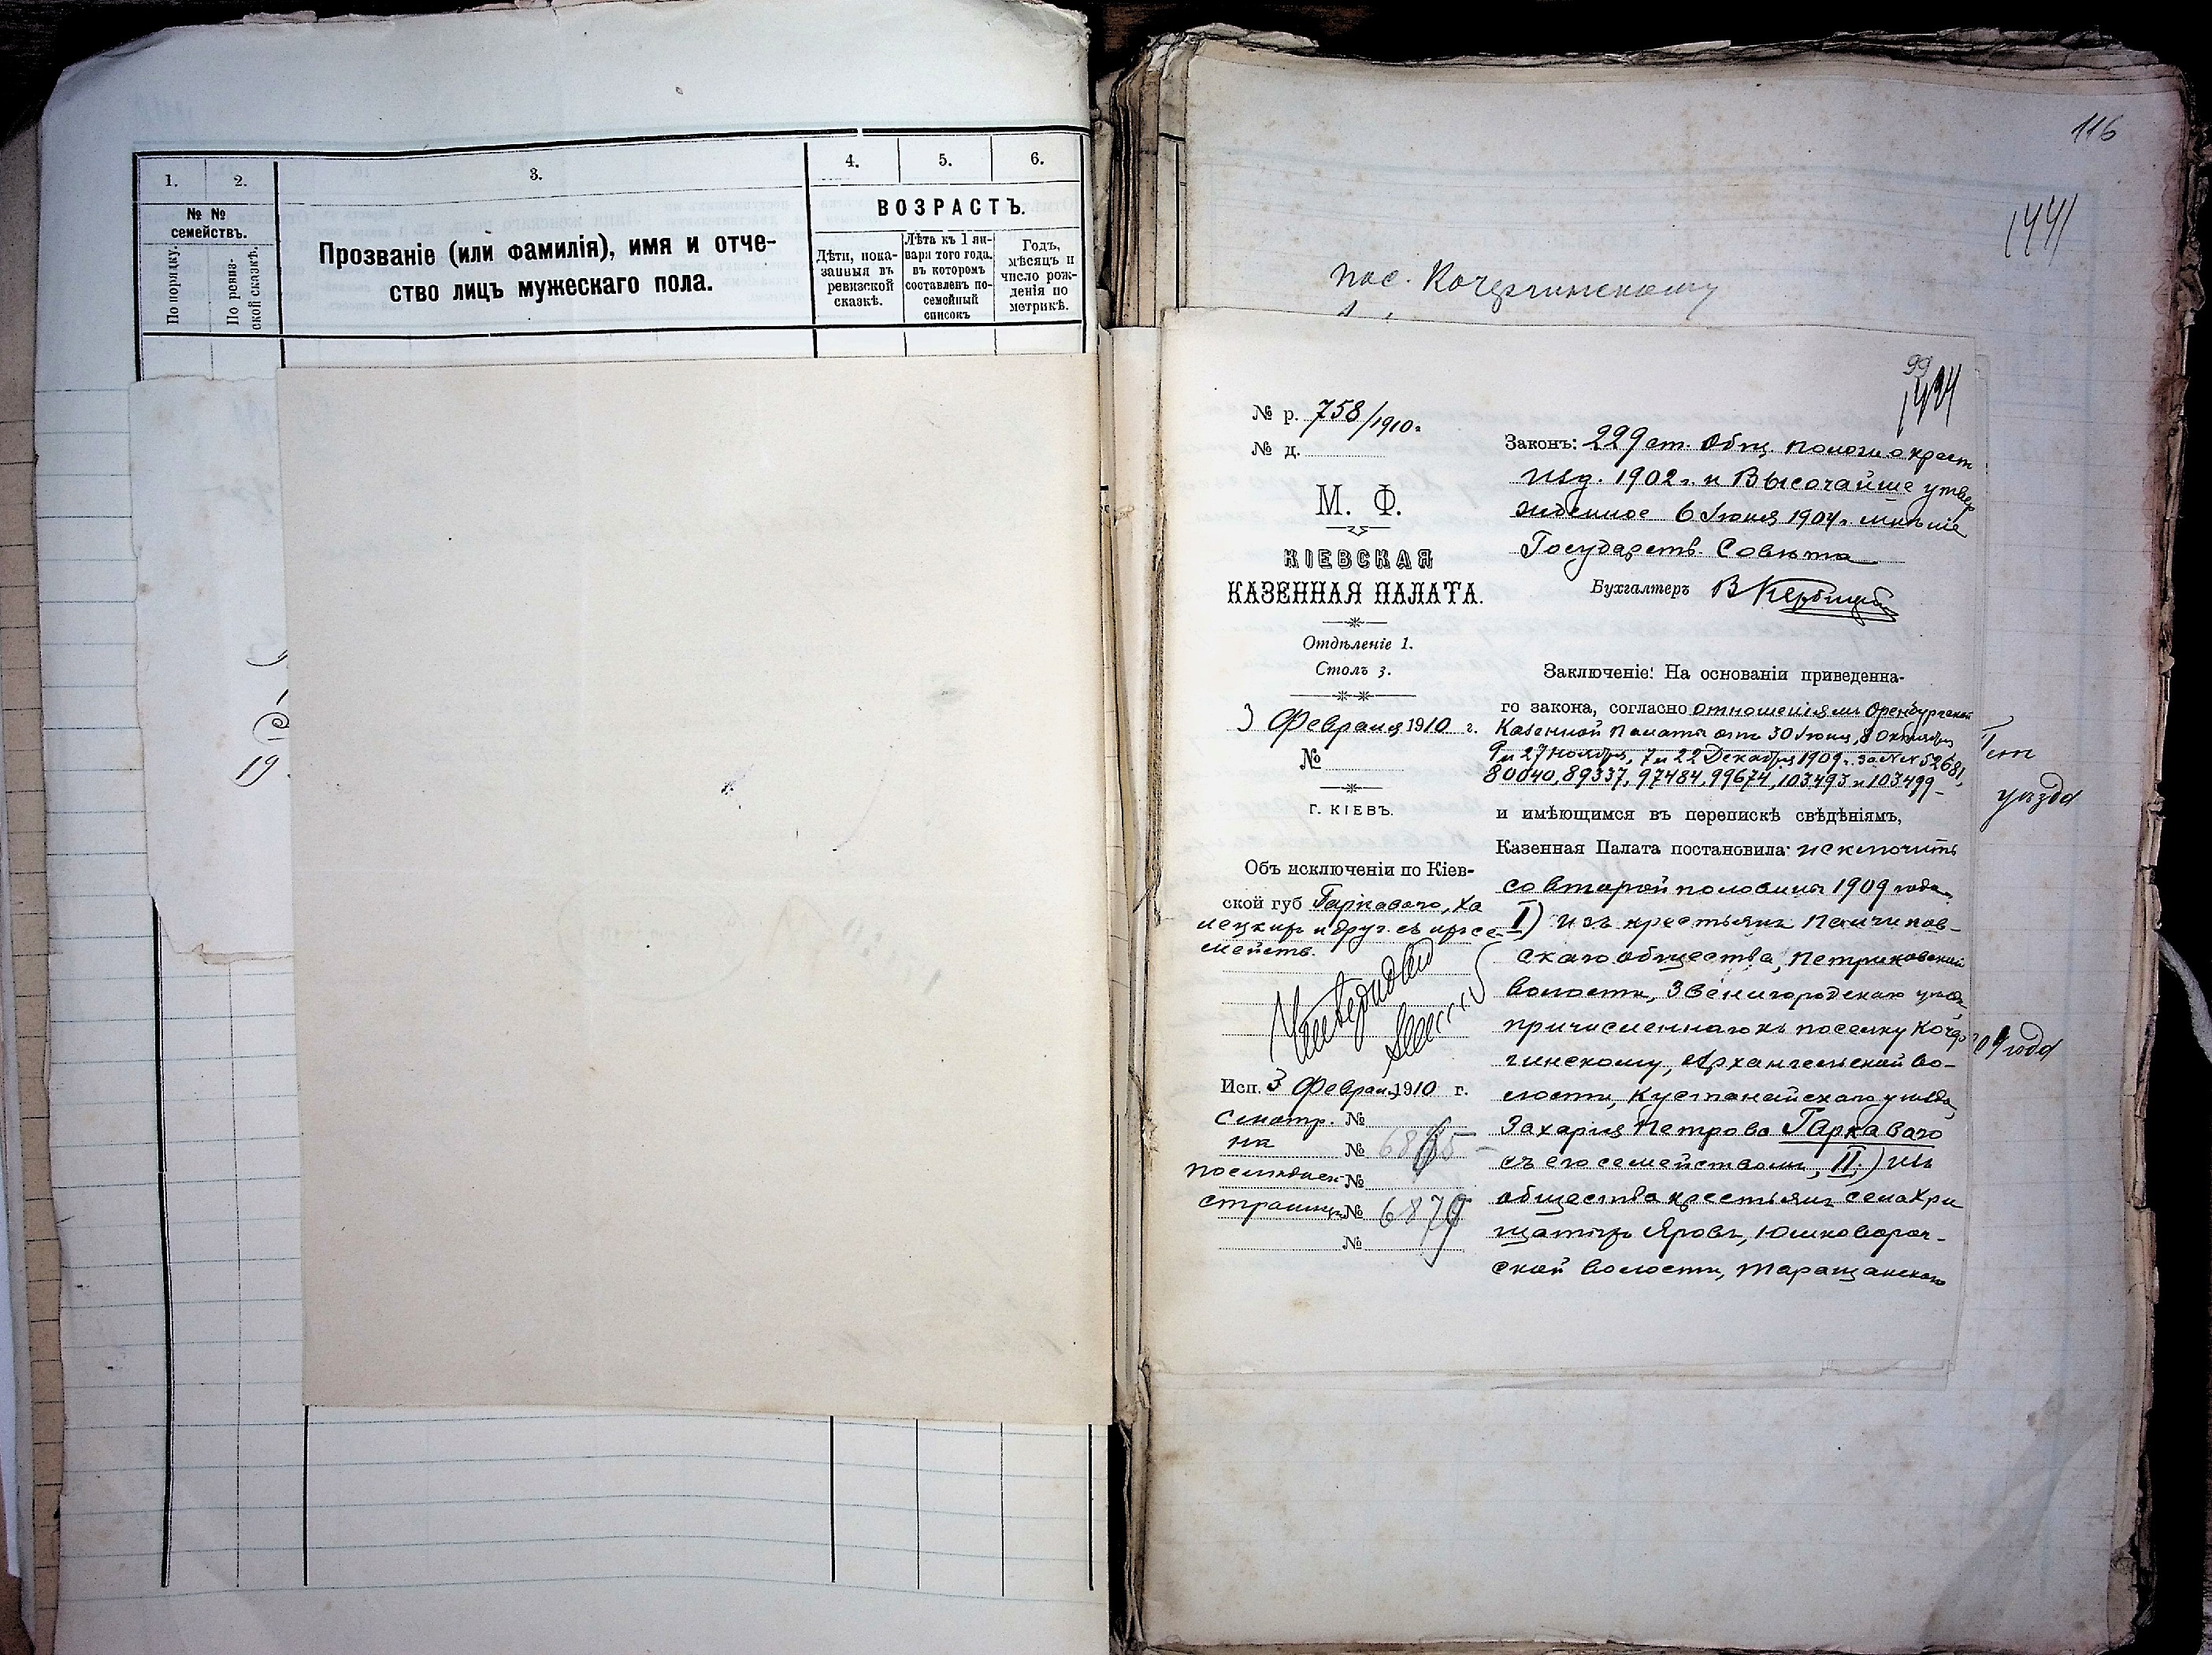 1.
2.
3.
4.
5.
6.
№ №
семействъ.
По порядку.
По ревиз-
ской сказкѣ.
Прозваніе (или фамилія), имя и отче-
ство лицъ мужескаго пола.
ВОЗРАСТЪ.
Дѣти, пока-
занныя въ
ревизской
сказкѣ.
Лѣта къ 1 ян-
варя того года,
въ которомъ
составленъ по-
семейный
списокъ
Годъ,
мѣсяцъ и
число рож-
денія по
метрикѣ.
19
116
1441
пос. Кочергинскому
99
№ р. 758/1910 г.
№ д.
М. Ф.
КІЕВСКАЯ
КАЗЕННАЯ ПАЛАТА.
Отдѣленіе 1.
Столъ 3.
3 Февраля 1910 г.
№
Г. КІЕВЪ.
Объ исключеніи по Кіев-
ской губ Гаркаваго, Ха
лецкихъ и друг. съ ихъ се-
мейств.
Исп. 3 Феврал. 1910 г.
Смотр. №
на №
последней №
страниц. № 6879
№
Законъ: 229 ст. Общ. полож. о крест
изд. 1902 г. и Высочайше утвер
жденное 6 Іюня 1904 г. мнѣніе
Государств. Совѣта
Бухгалтеръ
Заключеніе: На основаніи приведенна-
го закона, согласно отношеніями Оренбургской
Казенной Палаты отъ 30 Іюня, 8 Октября
9 и 27 Ноября, 7 и 22 Декабря 1909 г. за №№ 52681,
80040, 89337, 97484, 99674, 103493 и 103499
и имѣющимся въ перепискѣ свѣдѣніямъ,
Казенная Палата постановила: исключить
со второй половины 1909 года,
I) изъ крестьянъ
скаго общества, Петриковской
волости, Звенигородскаго уѣзда,
причисленнаго къ поселку Кочер
гинскому, Архангельской во-
лости, Кустанайскаго уѣзда,
Захарія Петрова Гаркаваго
съ его семействомъ, II) изъ
общества крестьянъ села Хри
щатый Яръ, Юшковорог-
ской волости, Таращанскаго
уѣзда
09 года